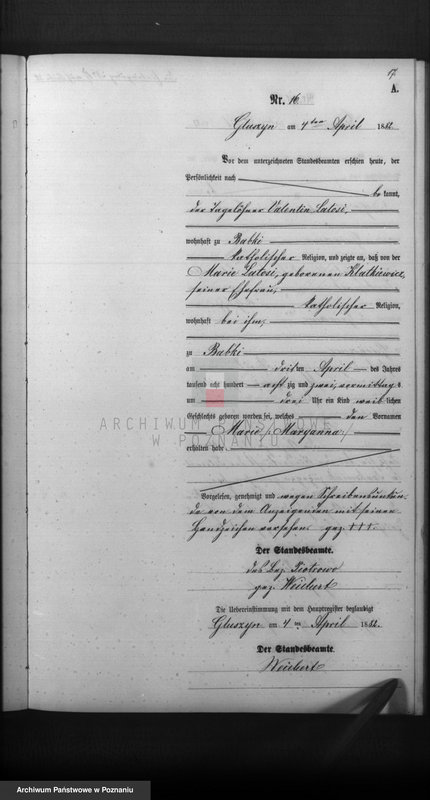 17.
A.
Nr. 16
Gluszyn am 4ten April 1882.
Vor dem unterzeichneten Standesbeamten erschien heute, der
Persönlichkeit nach
bekannt,
der Tagelöhner Valentin Latosi,
wohnhaft zu Babki
katholischer Religion, und zeigte an, daß von der
Marie Latosi, geborenen Klatkiewicz,
seiner Ehefrau,
katholischer Religion,
wohnhaft bei ihm,
zu Babki
am dritten April des Jahres
tausend acht hundert achtzig und zwei, vormittags
um drei Uhr ein Kind weiblichen
Geschlechts geboren worden sei, welches den Vornamen
Marie /: Maryanna :/
erhalten habe.
ARCHIWUM PAŃSTWOWE
W POZNANIU
Vorgelesen, genehmigt und wegen Schreibensunkun-
de von dem Anzeigenden mit seinen
Handzeichen versehen. gez. +++.
Der Standesbeamte.
des Bez. Piotrowo
gez. Weichert
Die Uebereinstimmung mit dem Hauptregister beglaubigt
Gluszyn am 4ten April 1882.
Der Standesbeamte.
Weichert
Archiwum Państwowe w Poznaniu